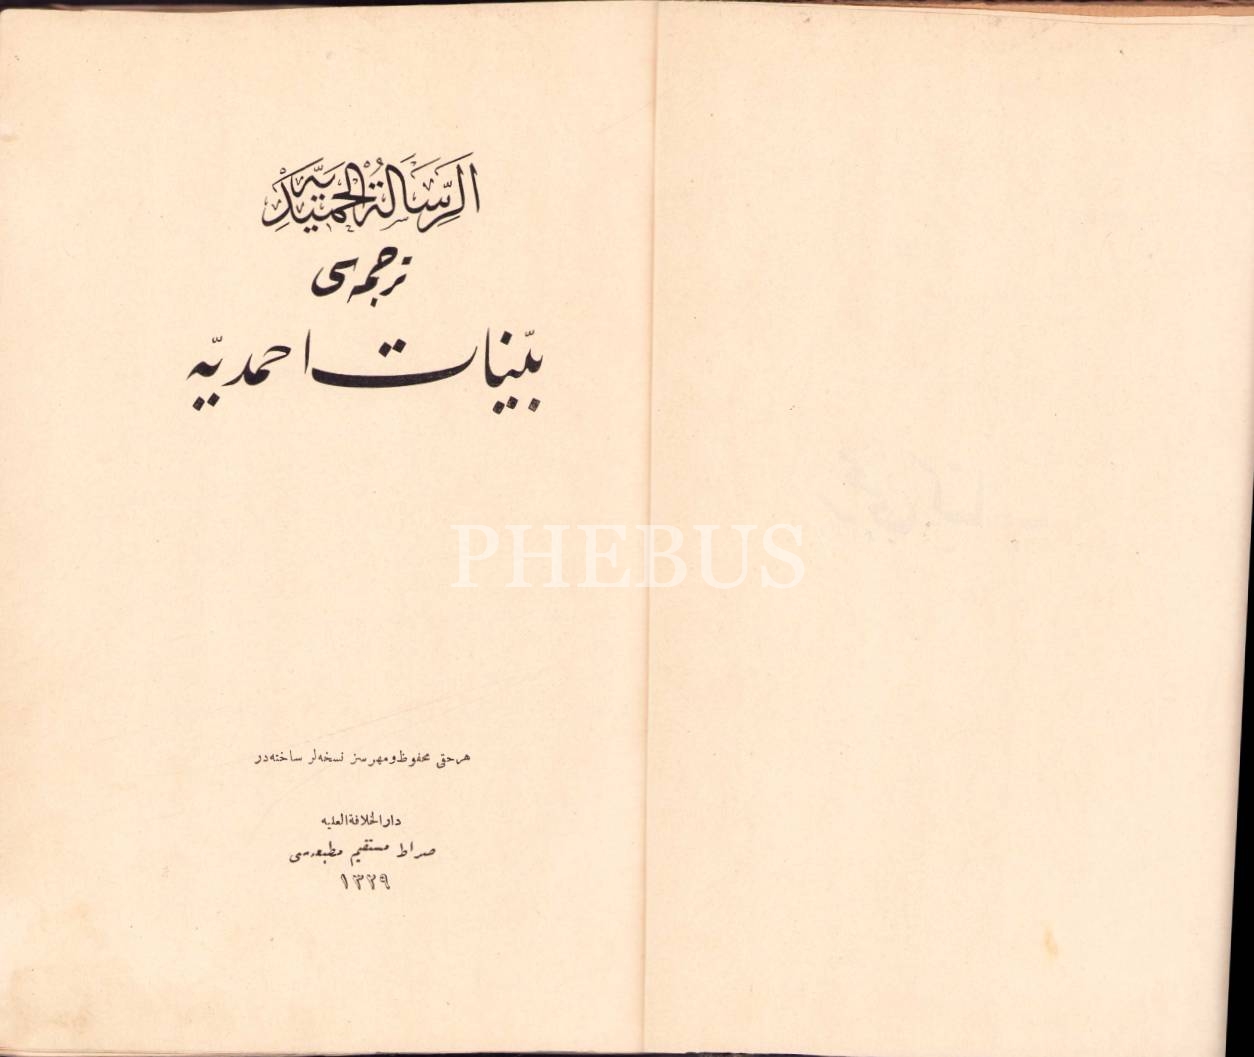 الرِّسَالَةُ الحَمِيدِيَّه
ترجمه‌سی
بیّنات احمدیّه
PHEBUS
هر حقی محفوظ و مهرسز نسخه‌لر ساخته‌در
دار الخلافة العلیه
صراط مستقیم مطبعه‌سی
١٣٢٩